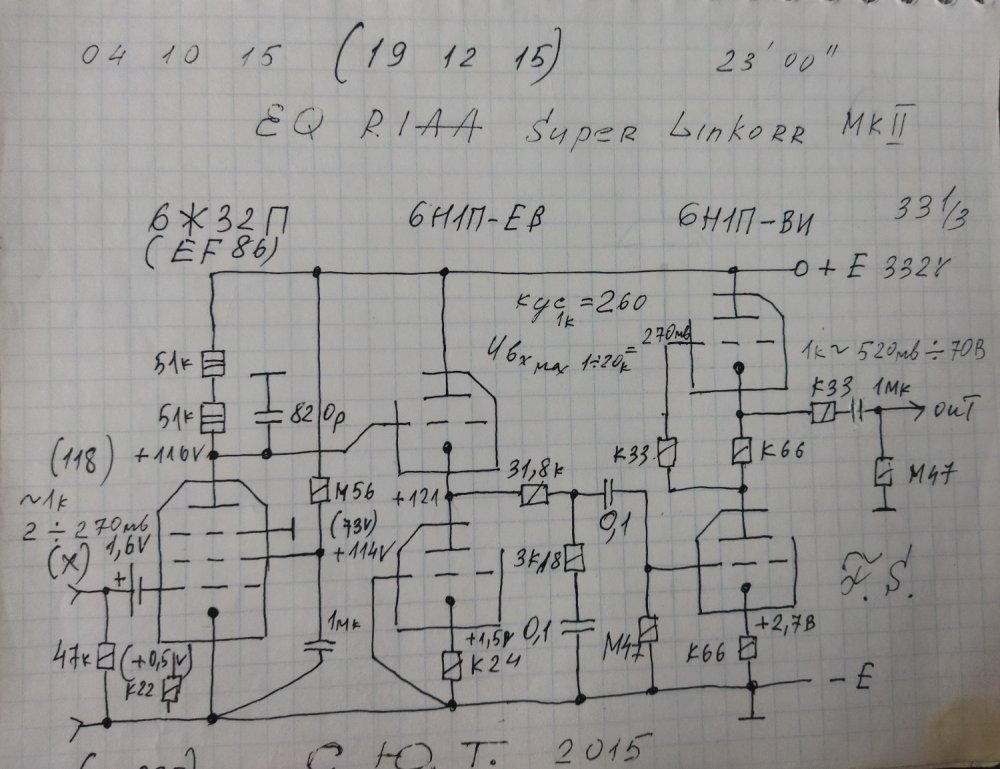 04 10 15 (19 12 15) 23' 00"
EQ RIAA Super Linkorr MKII
6Ж32П 6Н1П-ЕВ 6Н1П-ВИ 33 1/3
(EF86)
+ E 332V
Кус 1к = 260
Uвх max 1÷20к = 270мв
1к ~ 520мв ÷ 70В
51к
К33 1мк
out
51к 820p
(118) +116V
К33 К66
М47
31,8к
М56 +121
~1к
(73V)
2 ÷ 270мв
0,1
+114V
(x) 1,6V
+
3к,18
Z.S.
1мк
+1,5V 0,1
+2,7В
47к (+0,5V) М47
К22 К24 К66
- E
С. Ю. Т. 2015